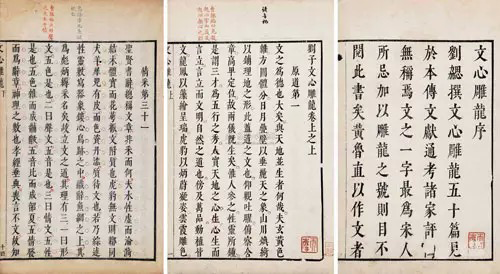 文心雕龍序
劉勰撰文心雕龍五十篇見
於本傳文獻通考諸家評一
無稱焉文之一字最為宋人
所忌加以雕龍之號則目不
閱此書矣黃魯直以作文者
劉子文心雕龍卷上之上
原道第一
文之為德也大矣與天地並生者何哉夫玄黃色
雜方圓體分日月疊璧以垂麗天之象山川煥綺
以鋪理地之形此蓋道之文也仰觀吐曜俯察含
章高卑定位故兩儀既生矣惟人參之性靈所鍾
是謂三才為五行之秀人實天地之心生心生而
言立言立而文明自然之道也傍及萬品動植皆
文龍鳳以藻繪呈瑞虎豹以炳蔚凝姿雲霞雕色
情采第三十一
聖賢書辭總稱文章非采而何夫水性虛而淪漪
結木體實而花萼振文附質也虎豹無文則鞹同
犬羊犀兕有皮而色資丹漆質待文也若乃綜述
性靈敷寫器象鏤心鳥跡之中織辭魚網之上其
為彪炳縟采名矣故立文之道其理有三一曰形
文五色是也二曰聲文五音是也三曰情文五性
是也五色雜而成黼黻五音比而成韶夏五情發
而為辭章神理之數也孝經垂典喪言不文故知
文心雕龍